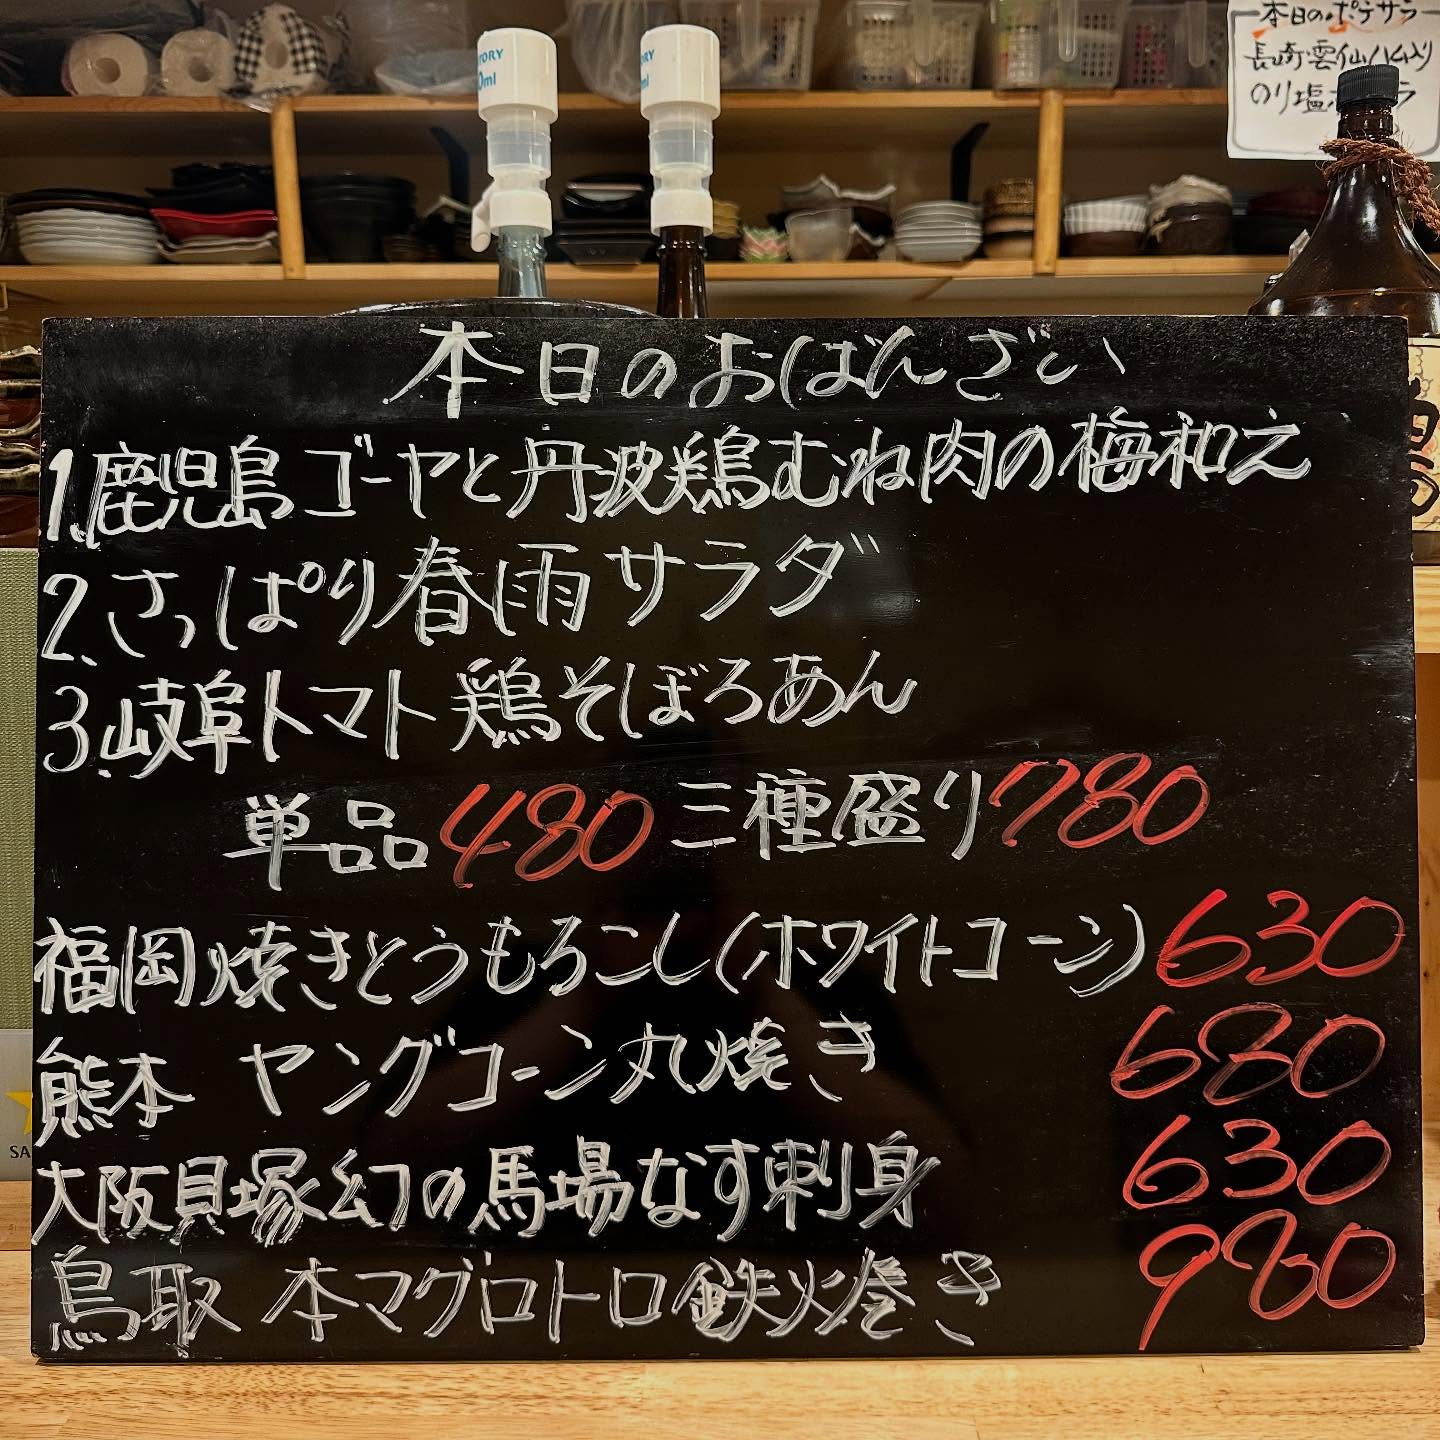 本日のポテサラ
長崎雲仙ハム入り
のり塩
本日のおばんざい
1.鹿児島ゴーヤと丹波鶏むね肉の梅和え
2.さっぱり春雨サラダ
3.岐阜トマト鶏そぼろあん
単品480 三種盛り780
福岡焼きとうもろこし(ホワイトコーン)630
熊本 ヤングコーン丸焼き 680
大阪貝塚幻の馬場なす刺身 630
鳥取 本マグロトロ鉄火巻き 980